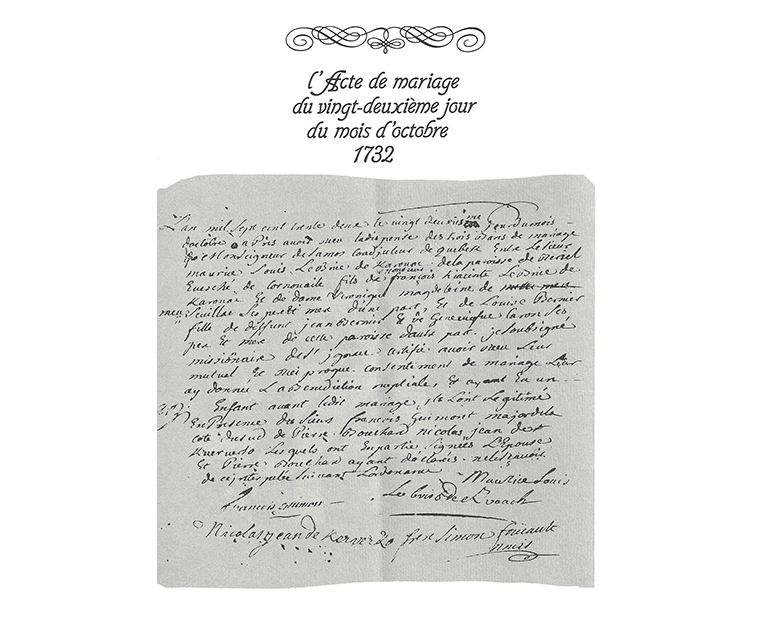 l'Acte de mariage
du vingt-deuxième jour
du mois d'octobre
1732
Lan mil sept cent trente deux le vingt deuxies me Jour du mois
doctobre apres avoir veu ladispense des trois bans de mariage
de Monseigneur de Samos coadjuteur de quebek Entre Le Sieur
maurice Louis LeBrice de Karouac de la paroisse de
Evesché de Cornouaile fils de françois hiacinte LeBrice de
Karouac Et de dame veronique magdeleine de
meu Seuillac Ses pere Et mere d'une part, Et de Louise Bernier
fille de deffunt jean Bernier Et de Geneviefve Caron Ses
pere Et mere de cette paroisse d'autre part. je Soubsigné
missionaire de St jgnace certifie avoir receu Leur
mutuel Et reciproque consentement de mariage Leur
ay donnée La Benediction nuptiale, Et ayant Eu un
Enfant avant ledit mariage, ils Lont Legitimé
En Presence du Sieur françois Guimont major de la
cote du sud de Pierre Bouchard nicolas jean de
Kerverdo Lesquels ont En partie Signée L'Epouse
Et Pierre Bouchard ayant déclarés ne le sçavoir
de ce interpelée Suivant Lordonance. Maurice Louis
francois guimon Le brice de K
Nicolas jean de Kerverdo frere Simon foucault